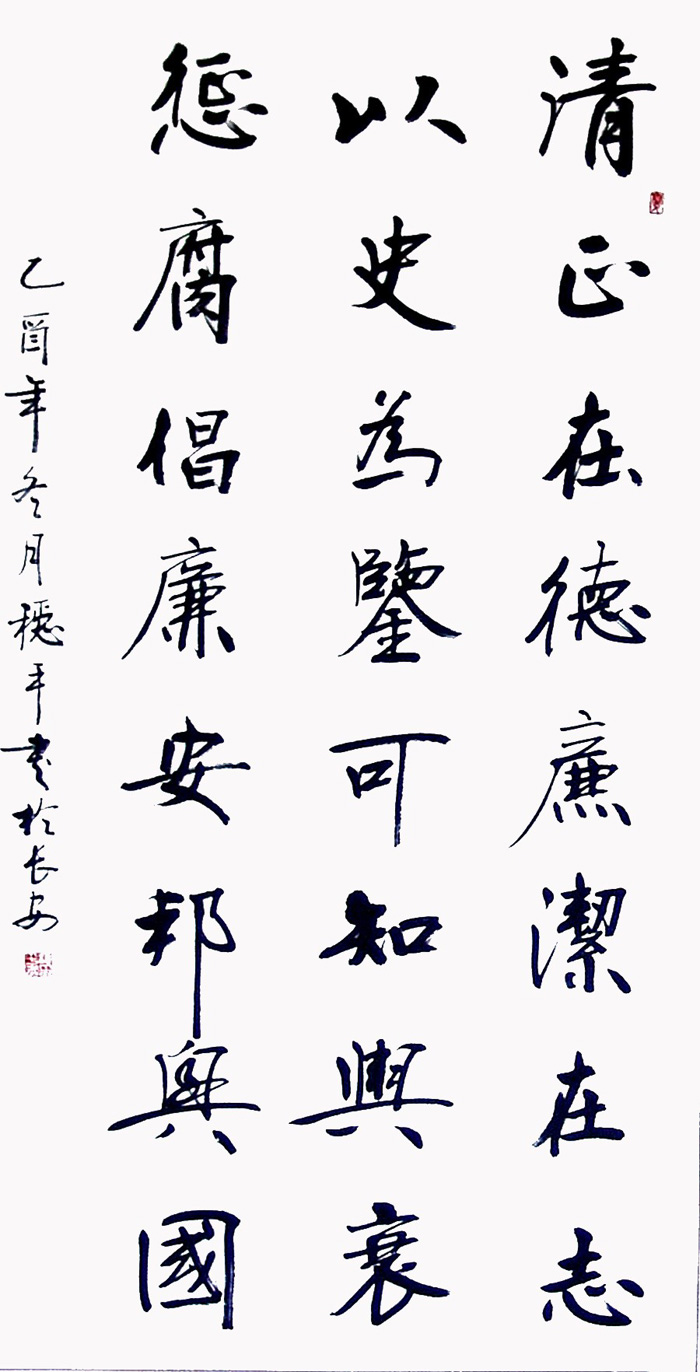 清正在德廉潔在志
以史為鑒可知興衰
懲腐倡廉安邦興國
乙酉年冬月穩平書於长安